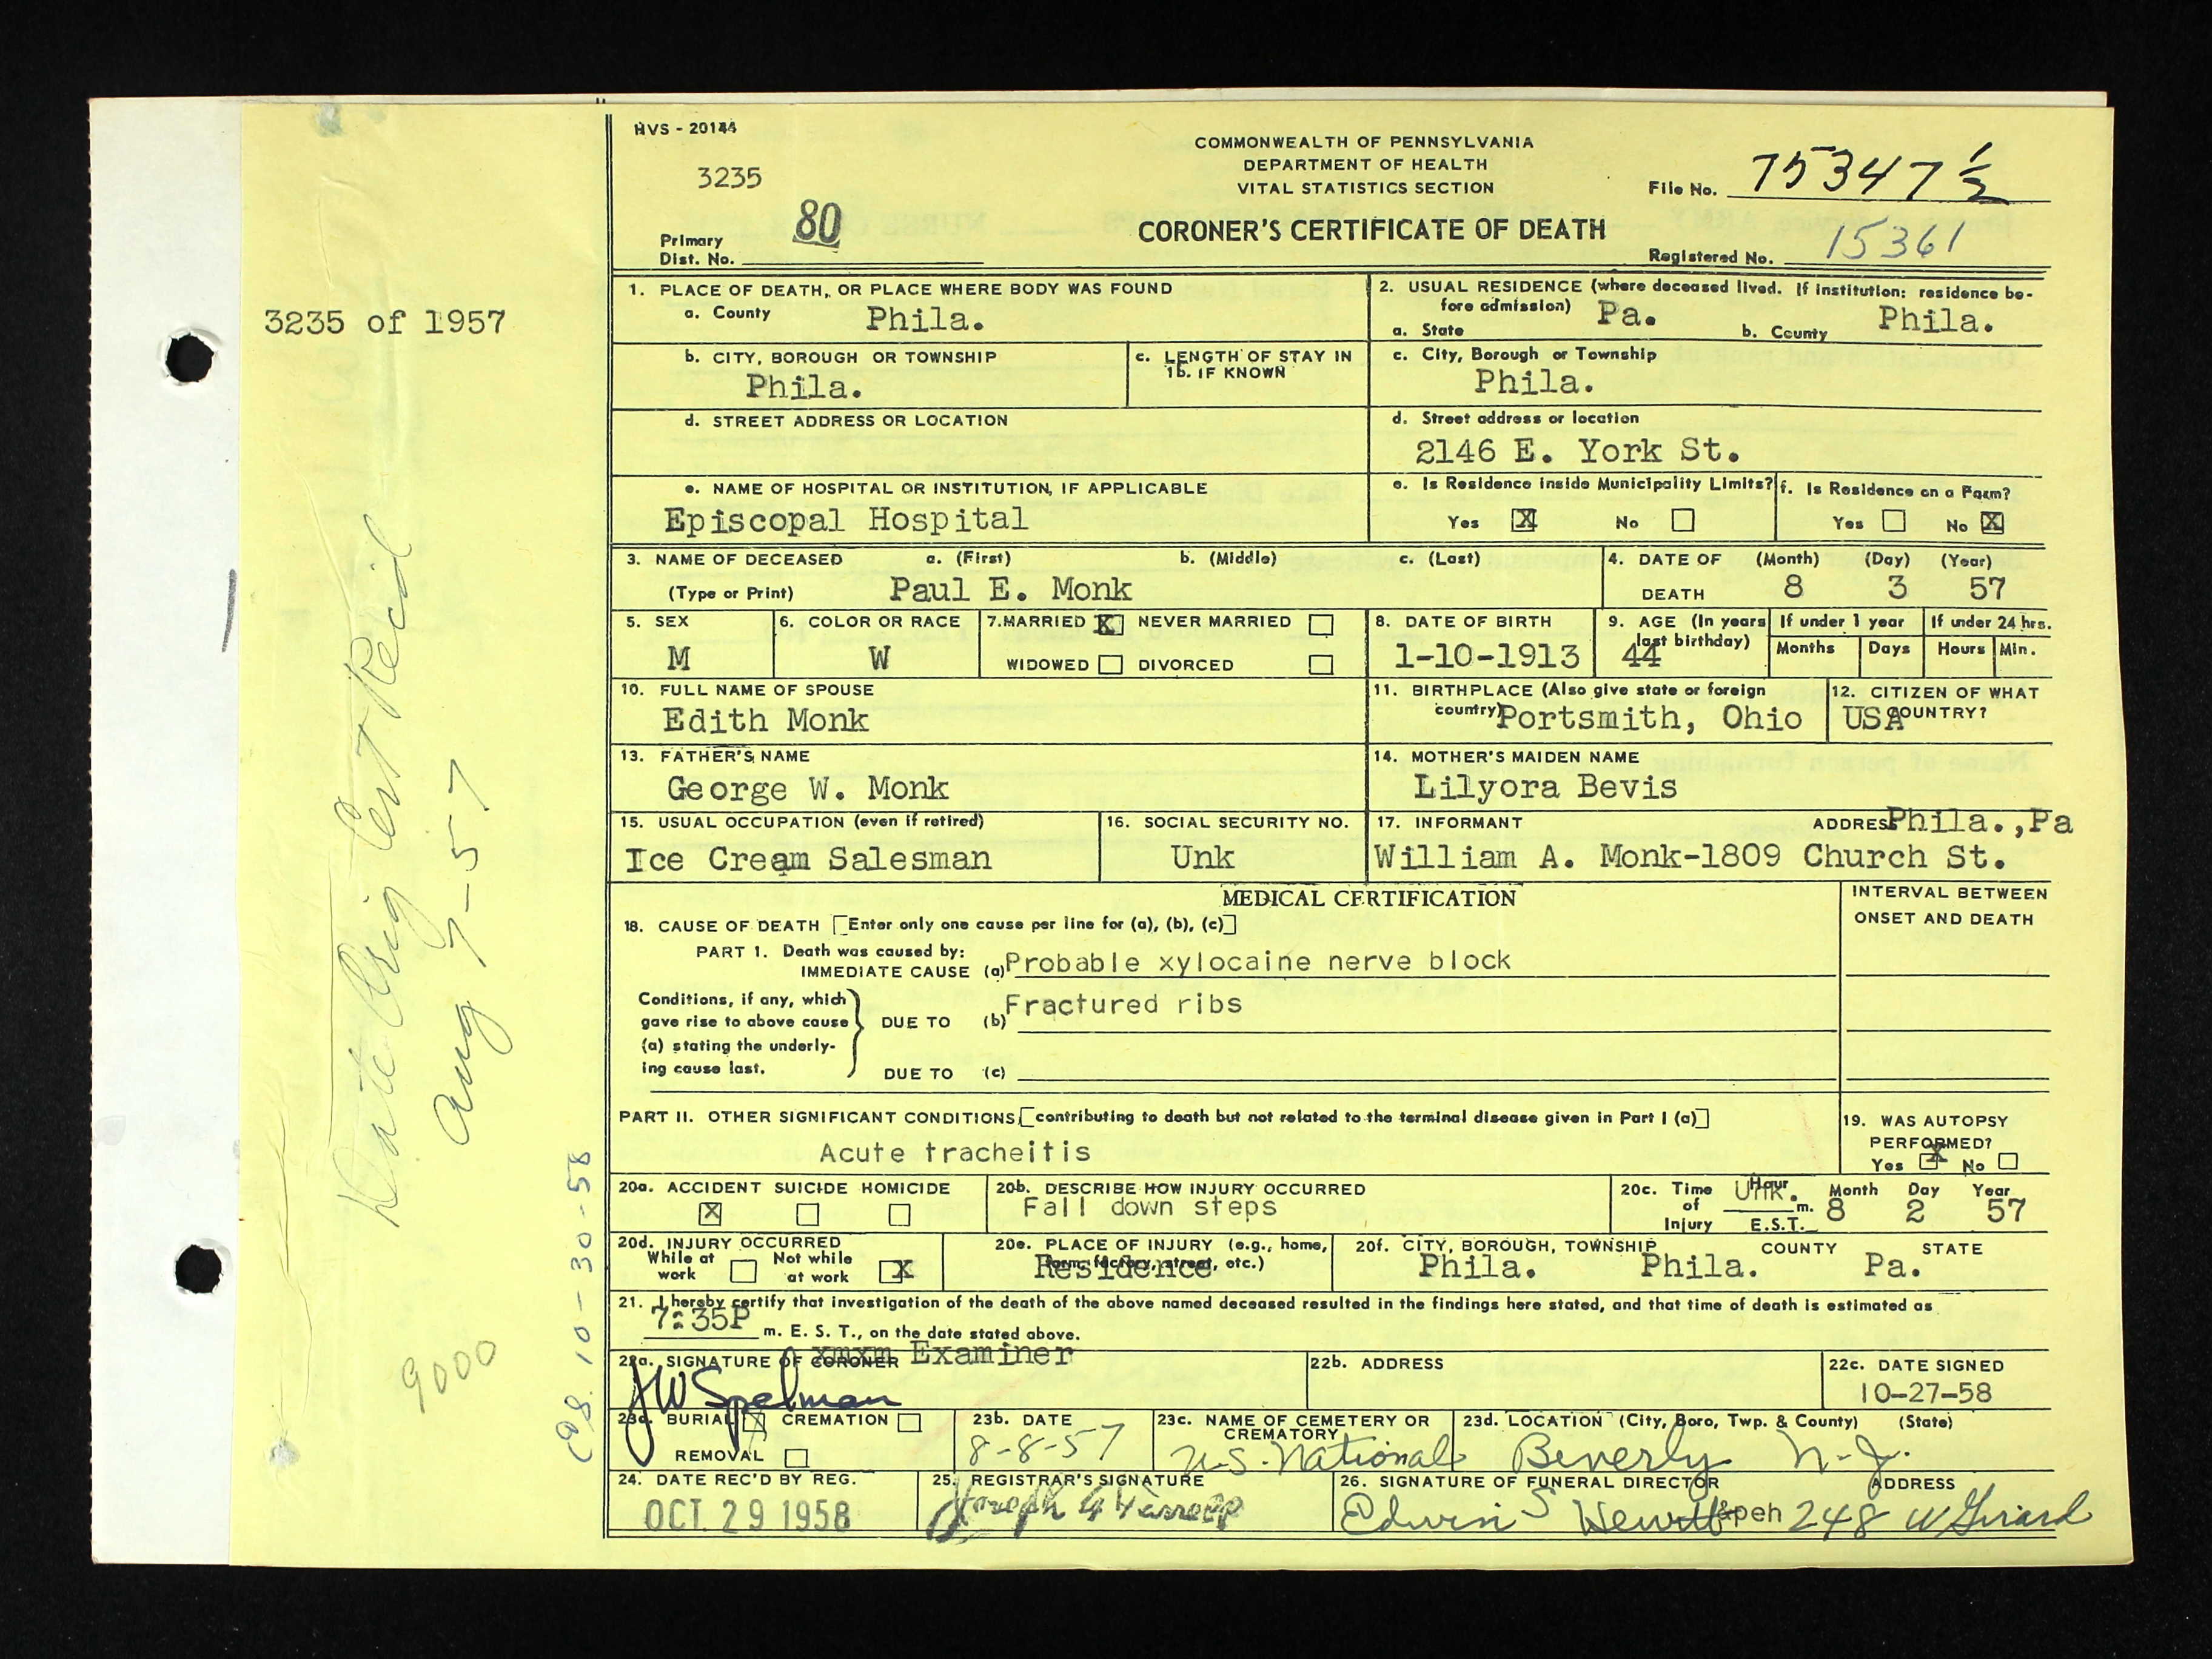 HVS - 20144
3235
COMMONWEALTH OF PENNSYLVANIA
DEPARTMENT OF HEALTH
VITAL STATISTICS SECTION
File No. 75347 1/2
80
Primary
Dist. No.
CORONER'S CERTIFICATE OF DEATH
Registered No. 15361
3235 of 1957
1. PLACE OF DEATH, OR PLACE WHERE BODY WAS FOUND
a. County Phila.
2. USUAL RESIDENCE (where deceased lived. If institution: residence be-
fore admission)
a. State Pa. b. County Phila.
b. CITY, BOROUGH OR TOWNSHIP
Phila.
c. LENGTH OF STAY IN
1b. IF KNOWN
c. City, Borough or Township
Phila.
d. STREET ADDRESS OR LOCATION
d. Street address or location
2146 E. York St.
e. NAME OF HOSPITAL OR INSTITUTION, IF APPLICABLE
Episcopal Hospital
e. Is Residence inside Municipality Limits?
Yes X No
f. Is Residence on a Farm?
Yes No X
3. NAME OF DECEASED a. (First) b. (Middle) c. (Last)
(Type or Print) Paul E. Monk
4. DATE OF (Month) (Day) (Year)
DEATH 8 3 57
5. SEX
M
6. COLOR OR RACE
W
7. MARRIED X NEVER MARRIED
WIDOWED DIVORCED
8. DATE OF BIRTH
1-10-1913
9. AGE (In years
last birthday)
44
If under 1 year
Months Days
If under 24 hrs.
Hours Min.
10. FULL NAME OF SPOUSE
Edith Monk
11. BIRTHPLACE (Also give state or foreign
country) Portsmith, Ohio
12. CITIZEN OF WHAT
COUNTRY?
USA
13. FATHER'S NAME
George W. Monk
14. MOTHER'S MAIDEN NAME
Lilyora Bevis
15. USUAL OCCUPATION (even if retired)
Ice Cream Salesman
16. SOCIAL SECURITY NO.
Unk
17. INFORMANT ADDRESS Phila.,Pa
William A. Monk-1809 Church St.
MEDICAL CERTIFICATION
INTERVAL BETWEEN
ONSET AND DEATH
18. CAUSE OF DEATH [Enter only one cause per line for (a), (b), (c)]
PART 1. Death was caused by:
IMMEDIATE CAUSE (a) Probable xylocaine nerve block
Conditions, if any, which
gave rise to above cause
(a) stating the underly-
ing cause last.
DUE TO (b) Fractured ribs
DUE TO (c)
PART II. OTHER SIGNIFICANT CONDITIONS [contributing to death but not related to the terminal disease given in Part I (a)]
Acute tracheitis
19. WAS AUTOPSY
PERFORMED?
Yes X No
20a. ACCIDENT SUICIDE HOMICIDE
X
20b. DESCRIBE HOW INJURY OCCURRED
Fall down steps
20c. Time
of
Injury
Hour
Unk. m.
E.S.T.
Month Day Year
8 2 57
20d. INJURY OCCURRED
While at
work
Not while
at work X
20e. PLACE OF INJURY (e.g., home,
farm, factory, street, etc.)
Residence
20f. CITY, BOROUGH, TOWNSHIP COUNTY STATE
Phila. Phila. Pa.
21. I hereby certify that investigation of the death of the above named deceased resulted in the findings here stated, and that time of death is estimated as
7:35P m. E. S. T., on the date stated above.
22a. SIGNATURE OF CORONER Examiner
JW Spelman
22b. ADDRESS
22c. DATE SIGNED
10-27-58
23a. BURIAL X CREMATION
REMOVAL
23b. DATE
8-8-57
23c. NAME OF CEMETERY OR
CREMATORY
U.S. National
23d. LOCATION (City, Boro, Twp. & County) (State)
Beverly N.J.
24. DATE REC'D BY REG.
OCT. 29 1958
25. REGISTRAR'S SIGNATURE
Joseph
26. SIGNATURE OF FUNERAL DIRECTOR ADDRESS
Edwin S &peh 248 W Girard
Date Orig Cert Rec'd
Aug 7-57
9000
10-30-58